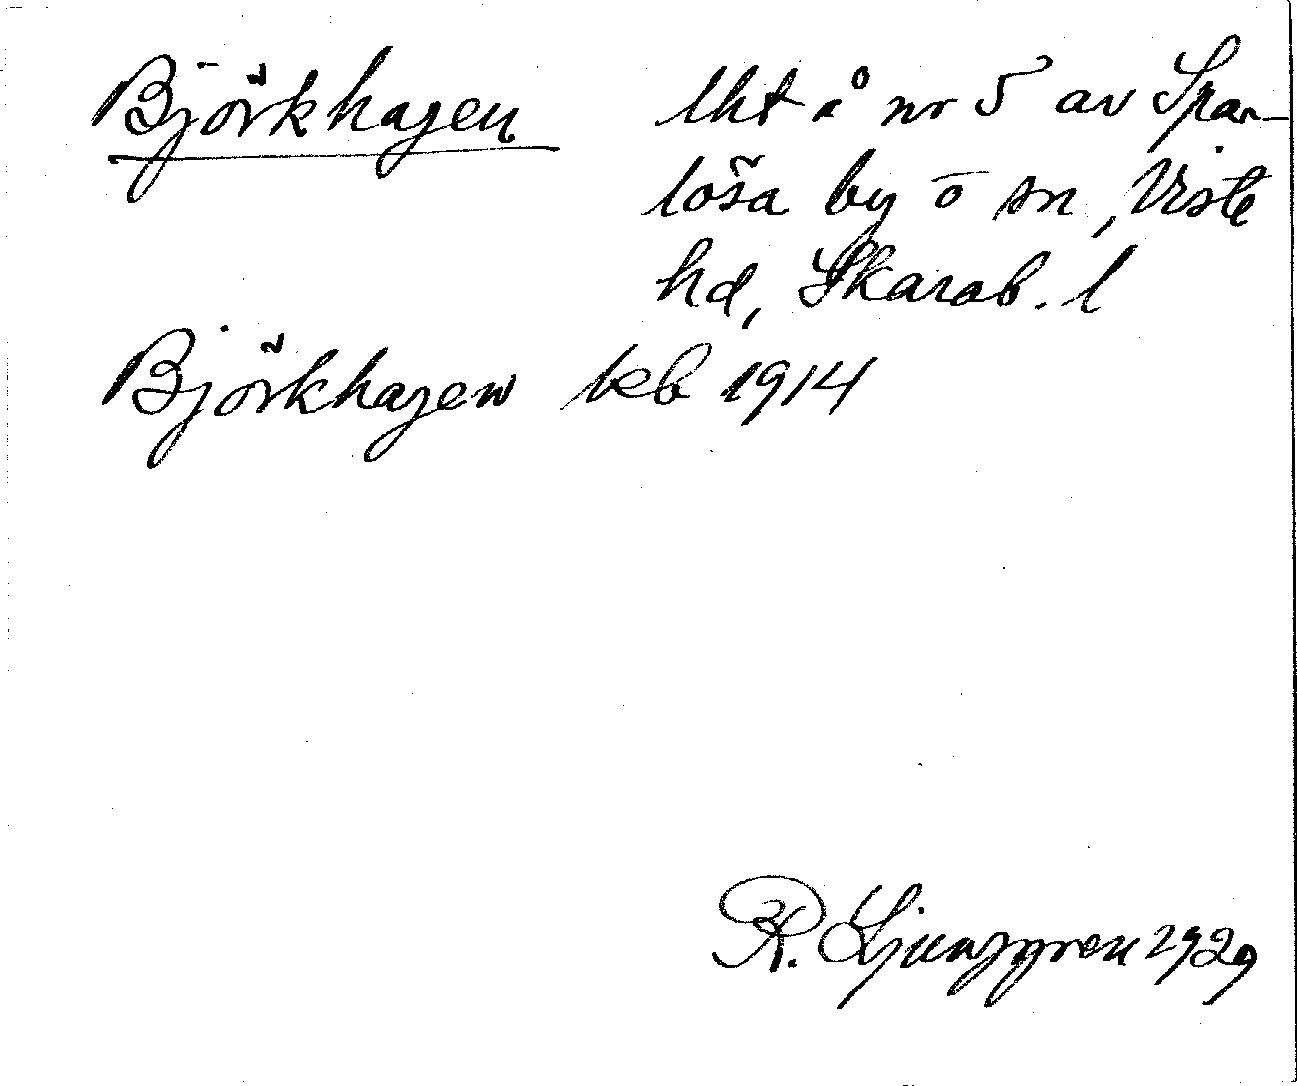 Björkhagen lht å nr 5 av Span-
lösa by o sn, Viste
hd, Skarab. l
Björkhagen kb 1914
R. Ljunggren 1929